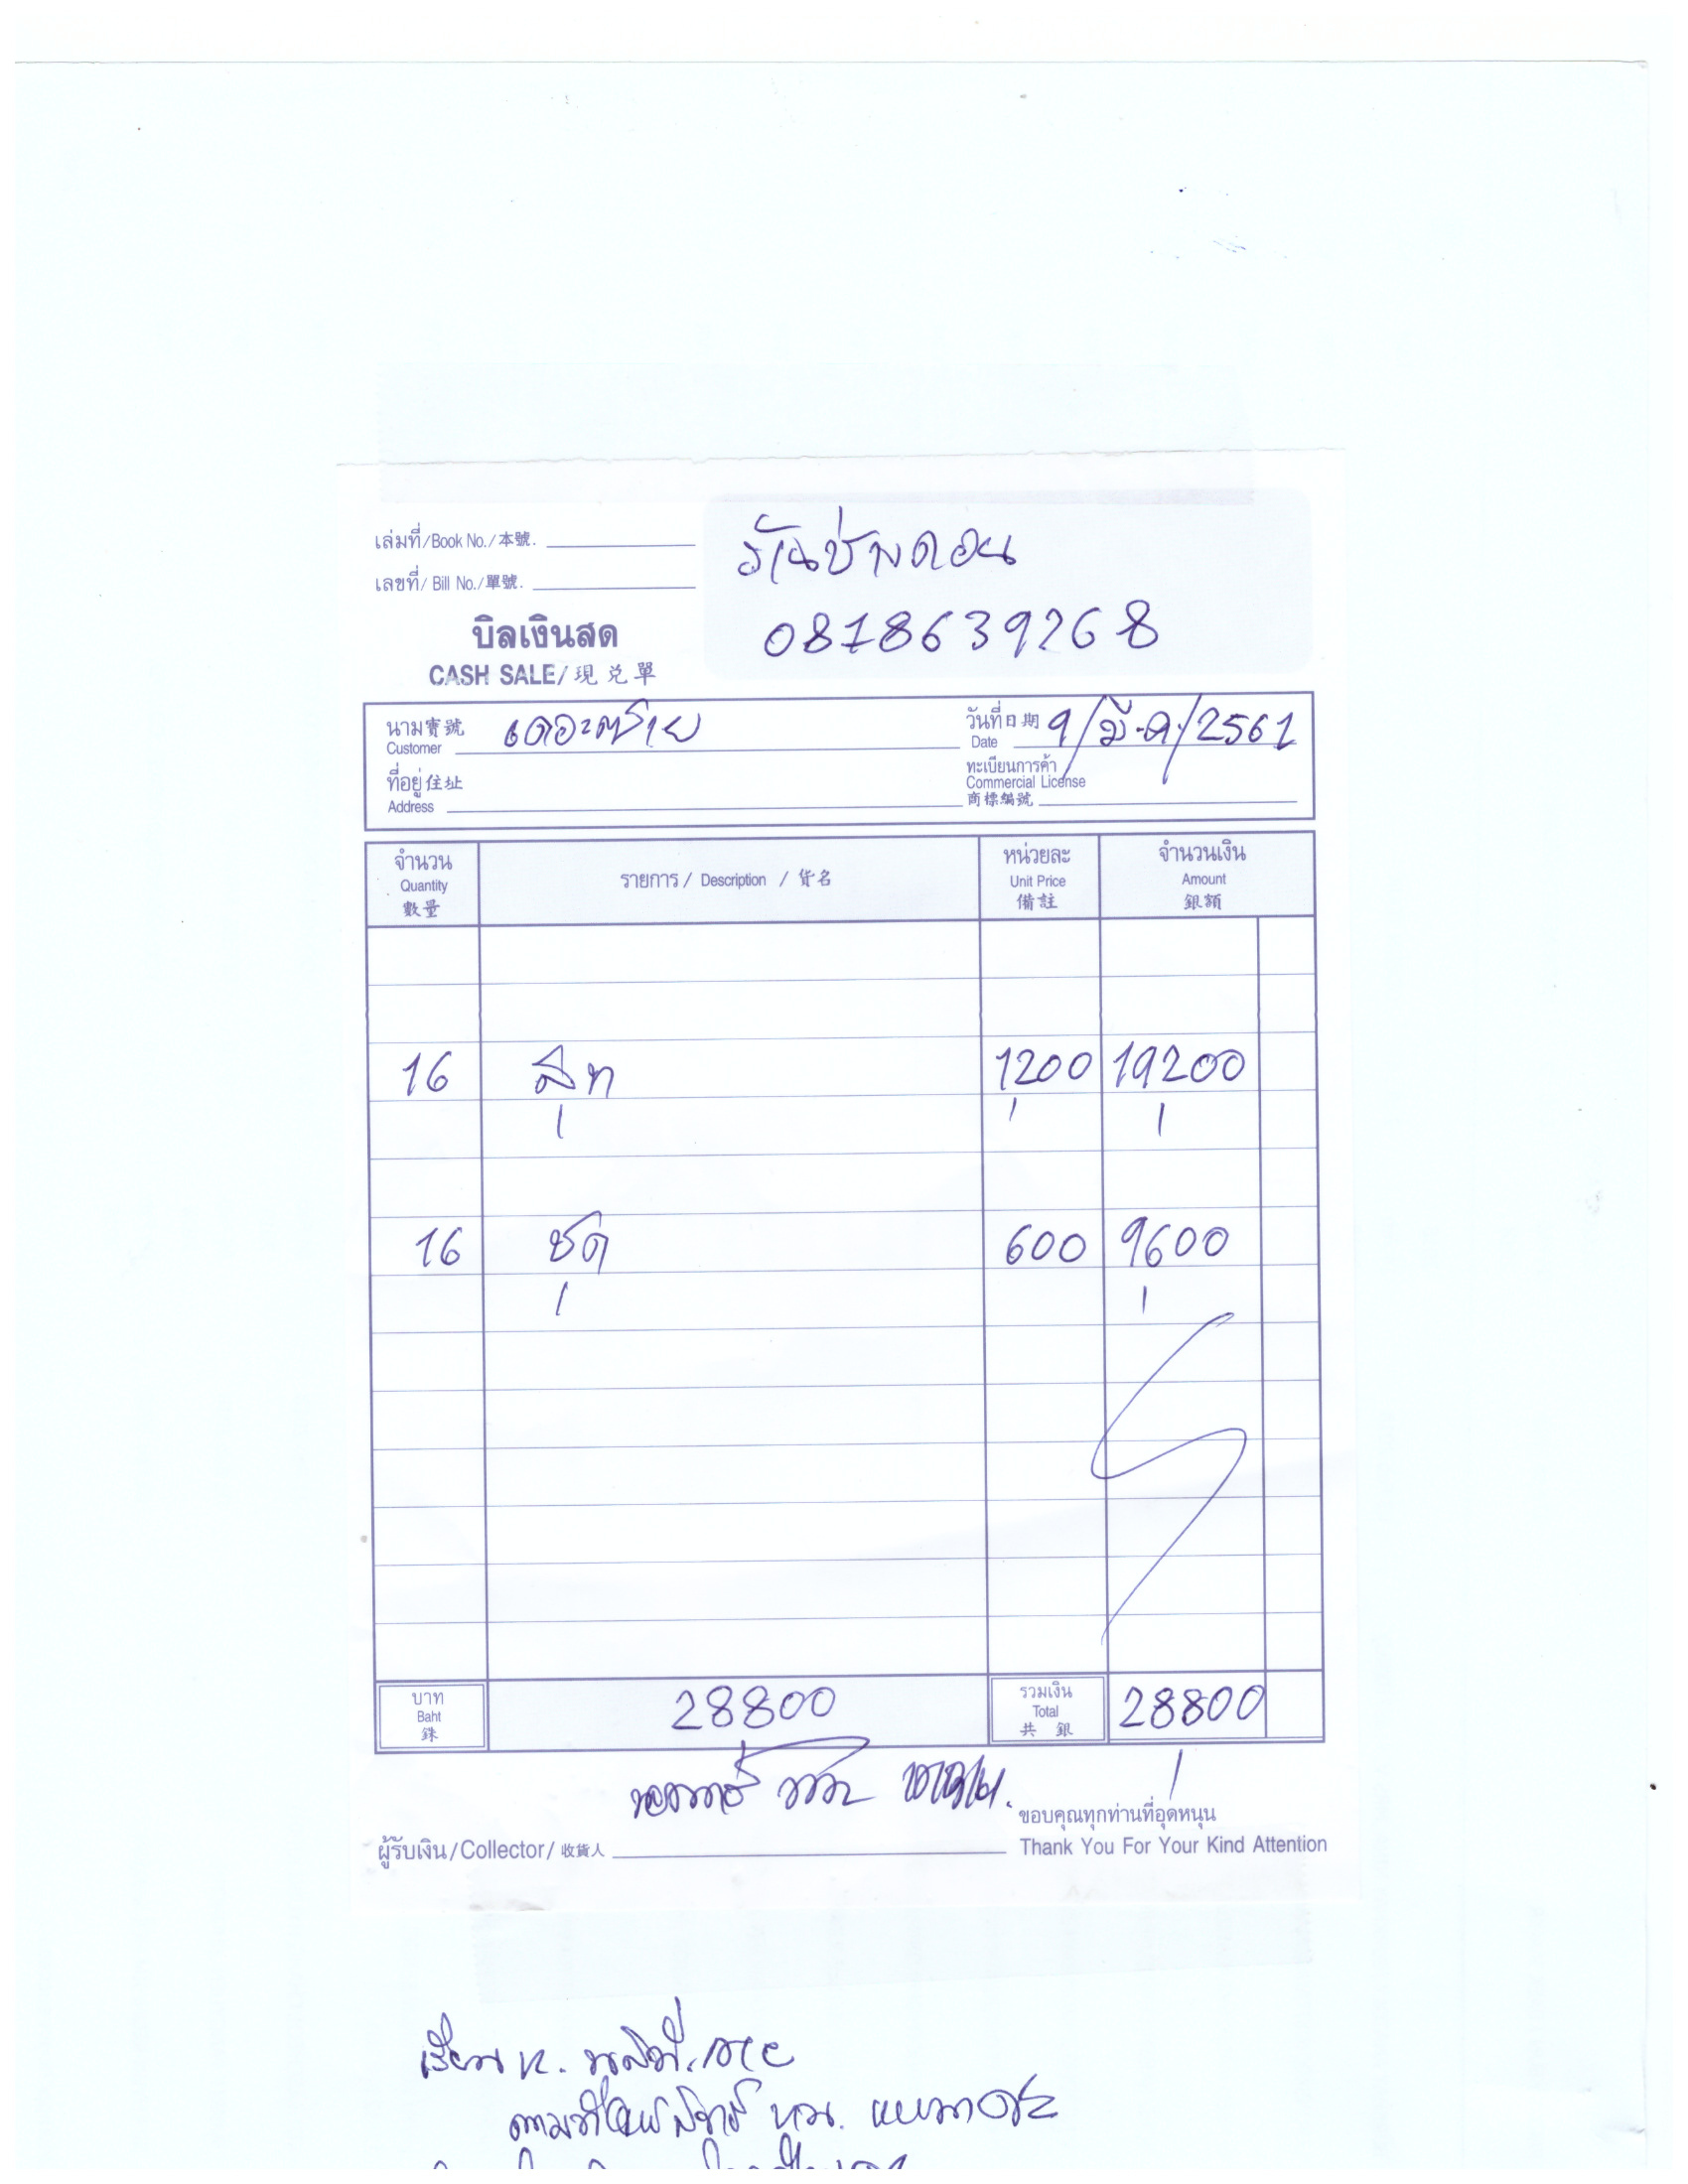 เล่มที่/Book No./本號.
เลขที่/ Bill No./單號.
ร้านช่างดอน
0818639268
บิลเงินสด
CASH SALE/現兌單
นาม寶號 Customer เดอะทราย
วันที่日期 Date 9/มี.ค./2561
ที่อยู่住址 Address
ทะเบียนการค้า Commercial License 商標編號
จำนวน Quantity 數量 รายการ / Description / 貨名 หน่วยละ Unit Price 備註 จำนวนเงิน Amount 銀額
16 สูท 1200 19200
16 ชุด 600 9600
บาท Baht 銖 28800 รวมเงิน Total 共銀 28800
ขอบคุณทุกท่านที่อุดหนุน
ผู้รับเงิน/Collector/收貨人 Thank You For Your Kind Attention